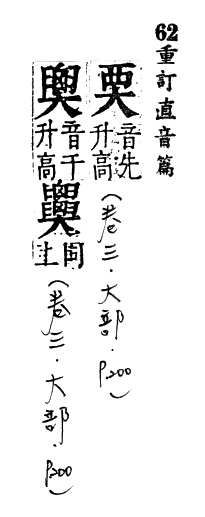 62重訂直音篇
音先
升高
(卷三.大部.P200)
音千
升高
同上
(卷三.大部.P200)